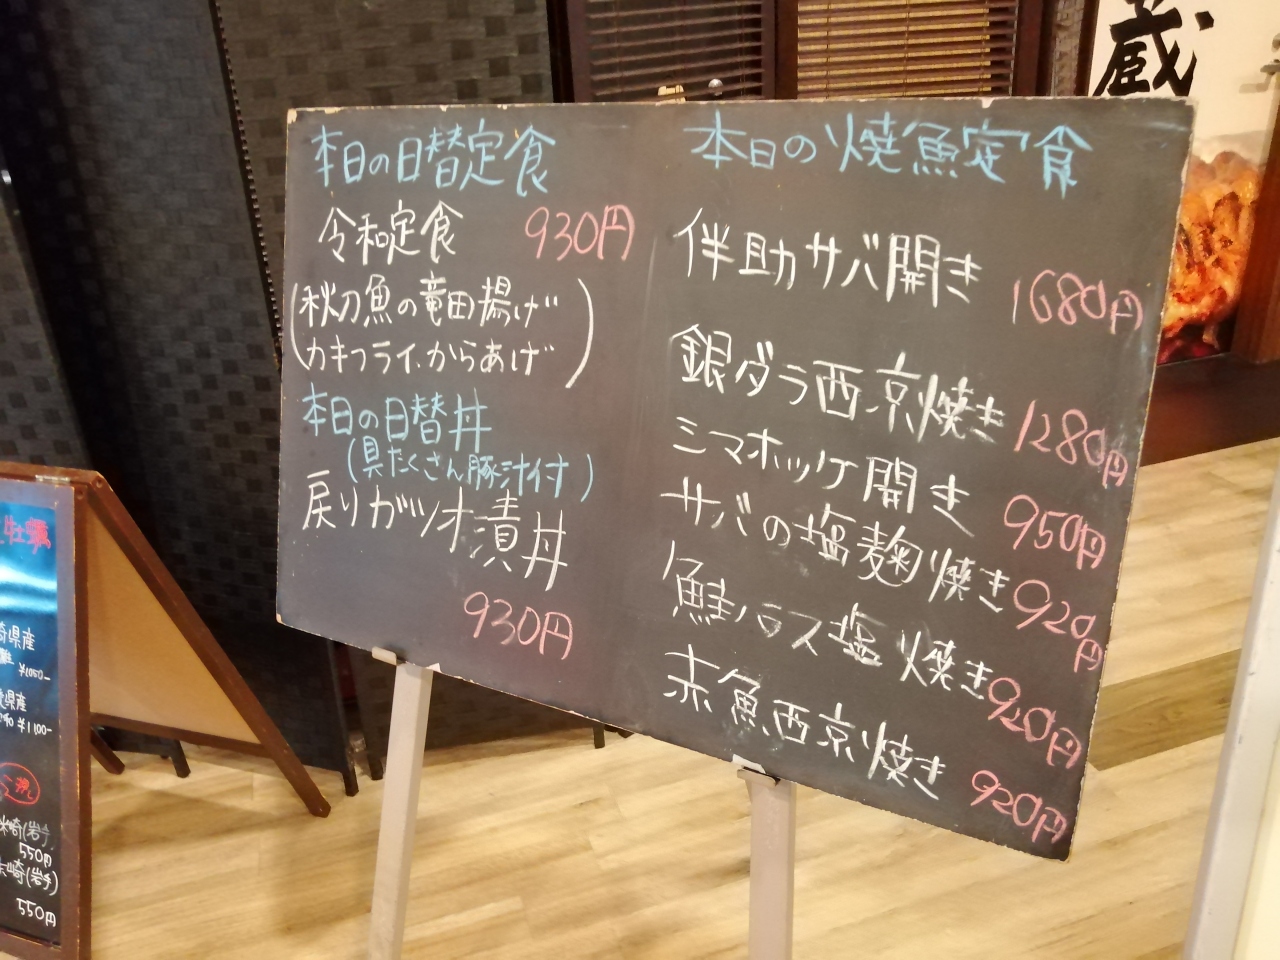 蔵
本日の日替定食
令和定食 930円
(秋刀魚の竜田揚げ
カキフライ.からあげ)
本日の日替丼
(具だくさん豚汁付)
戻りガツオ漬丼
930円
本日の焼魚定食
伴助サバ開き 1680円
銀ダラ西京焼き 1280円
シマホッケ開き 950円
サバの塩麹焼き 920円
鮭ハラス塩焼き 920円
赤魚西京焼き 920円
牡蠣
崎県産
¥1050-
県産
¥1100-
崎(岩手)
550円
崎(岩手)
550円